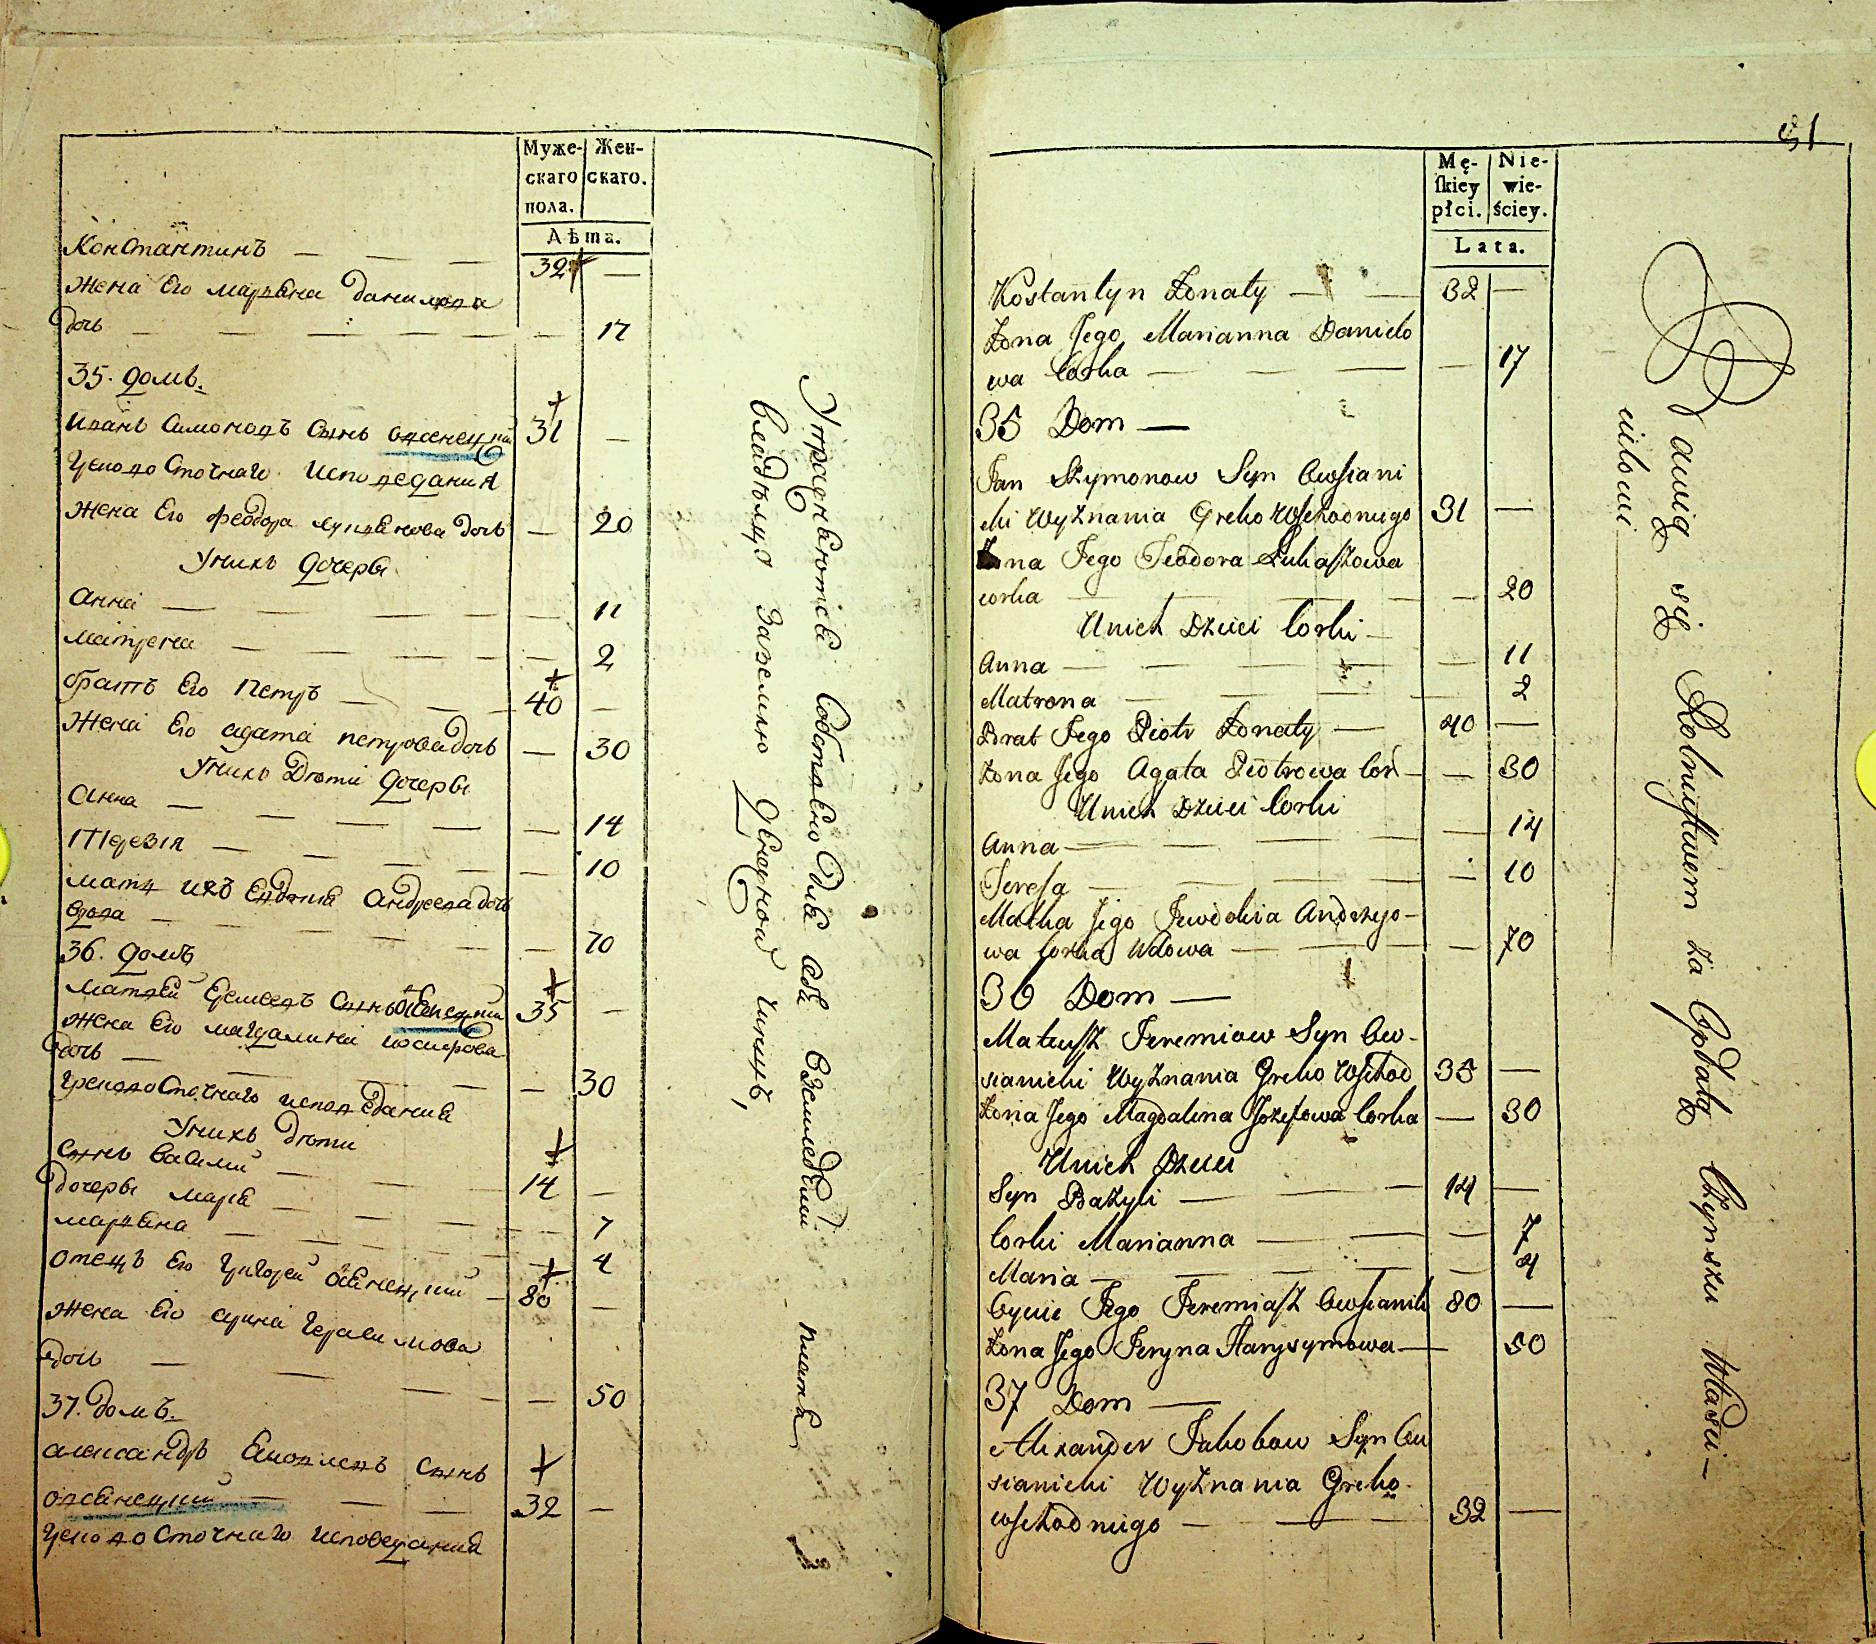 Муже-
скаго
пола.
Жен-
скаго.
Лѣта.
Константинъ — — — 32 —
жена Его марьяна данилова
дочь — — — — — 17
35. домъ.
Иванъ Симоновъ Сынъ овсенецкий 31 —
Грековосточнаго исповедания
жена Его феодора лукьянова дочь — 20
Унихъ дочеры
анна — — — — 11
матрена — — — — 2
братъ Его Петръ — — — 40 —
жена Его агата петрова дочь — 30
Унихъ Дѣти дочеры
Анна — — — — — 14
Терезия — — — — — 10
мать ихъ Евдокия Андреева дочь
вдова — — — — — 70
36. домъ
матвей Еремеевъ Сынъ овсенецкий 35 —
жена Его магдалина иосифова
дочь — — — — — 30
грековосточнаго исповедания
Унихъ дѣти
Сынъ василий — — — 14 —
дочеры мария — — — — 7
марьяна — — — — 4
отецъ Его Григорей овсянецкий — 80 —
жена Его ирина Герасимова
дочь — — — — — 50
37. домъ.
александръ Яковлевъ Сынъ
овсянецкий — — — 32 —
Грековосточнаго исповедания
Упражняются собственно для себя земледелием платя
владельцу за землю денежной чиншъ,
51
Mę-
skiey
płci.
Nie-
wie-
ściey.
Lata.
Kostantyn Żonaty — — 32 —
Żona Jego Marianna Danielo
wa Corka — — — — 17
35 Dom —
Jan Szymonow Syn Owsiani
cki Wyznania Greko Wschodniego 31 —
Żona Jego Teodora Łukaszowa
corka — — — — 20
Unich Dzieci Corki —
Anna — — — — 11
Matrona — — — — 2
Brat Jego Piotr Żonaty — 40 —
Żona Jego Agata Piotrowa Cor — — 30
Unich Dzieci Corki
Anna — — — — 14
Teresa — — — — 10
Matka Jego Jewdokia Andrzejo-
wa Corka Wdowa — — — 70
36 Dom —
Mateusz Jeremiow Syn Ow-
sianicki Wyznania Greko Wschod 35 —
Żona Jego Magdalena Jozefowa Corka — 30
Unich Dzieci
Syn Bazyli — — — 14 —
Corki Marianna — — — 7
Maria — — — — 4
Oyciec Jego Jeremiasz Owsianick 80 —
Żona Jego Jeryna Harysymowa — 50
37 Dom —
Alexander Jakobow Syn Ow
sianicki Wyznania Greko-
wschodniego — — — 32 —
Bawią się Rolnictwem za Opłatą Czynszu Właści-
cielowi